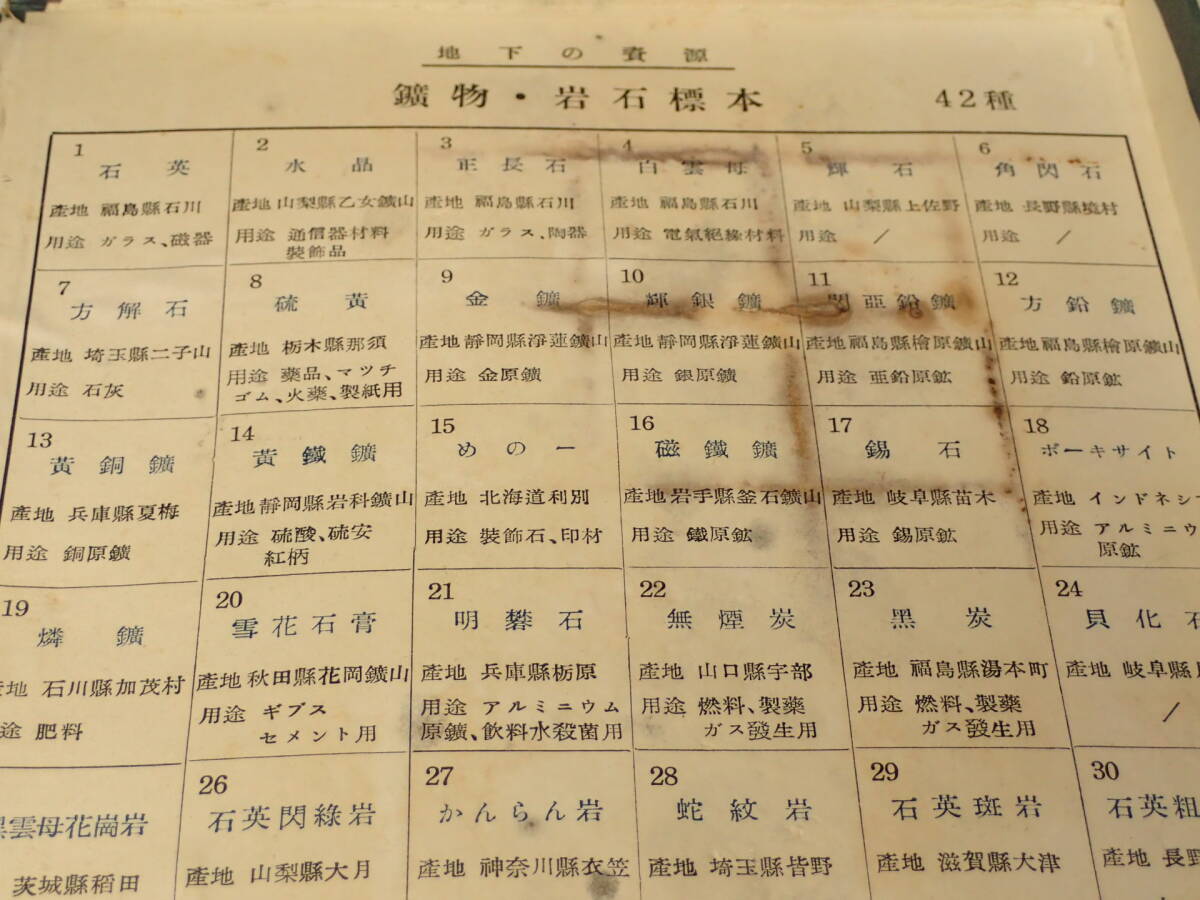 地下の資源
鑛物・岩石標本 42種
1
石英
產地 福島縣石川
用途 ガラス、磁器
2
水晶
產地 山梨縣乙女鑛山
用途 通信器材料
裝飾品
3
正長石
產地 福島縣石川
用途 ガラス、陶器
4
白雲母
產地 福島縣石川
用途 電氣絕緣材料
5
輝石
產地 山梨縣上佐野
用途 /
6
角閃石
產地 長野縣境村
用途 /
7
方解石
產地 埼玉縣二子山
用途 石灰
8
硫黃
產地 栃木縣那須
用途 藥品、マツチ
ゴム、火藥、製紙用
9
金鑛
產地 靜岡縣淨蓮鑛山
用途 金原鑛
10
輝銀鑛
產地 靜岡縣淨蓮鑛山
用途 銀原鑛
11
閃亞鉛鑛
產地 福島縣檜原鑛山
用途 亜鉛原鉱
12
方鉛鑛
產地 福島縣檜原鑛山
用途 鉛原鉱
13
黃銅鑛
產地 兵庫縣夏梅
用途 銅原鑛
14
黃鐵鑛
產地 靜岡縣岩科鑛山
用途 硫酸、硫安
紅柄
15
めのー
產地 北海道利別
用途 裝飾石、印材
16
磁鐵鑛
產地 岩手縣釜石鑛山
用途 鐵原鉱
17
錫石
產地 岐阜縣苗木
用途 錫原鉱
18
ボーキサイト
產地 インドネシ
用途 アルミニウ
原鉱
19
燐鑛
產地 石川縣加茂村
途 肥料
20
雪花石膏
產地 秋田縣花岡鑛山
用途 ギブス
セメント用
21
明礬石
產地 兵庫縣栃原
用途 アルミニウム
原鑛、飮料水殺菌用
22
無煙炭
產地 山口縣宇部
用途 燃料、製藥
ガス發生用
23
黑炭
產地 福島縣湯本町
用途 燃料、製藥
ガス發生用
24
貝化石
產地 岐阜縣
/
黑雲母花崗岩
茨城縣稻田
26
石英閃綠岩
產地 山梨縣大月
27
かんらん岩
產地 神奈川縣衣笠
28
蛇紋岩
產地 埼玉縣皆野
29
石英斑岩
產地 滋賀縣大津
30
石英粗
產地 長野